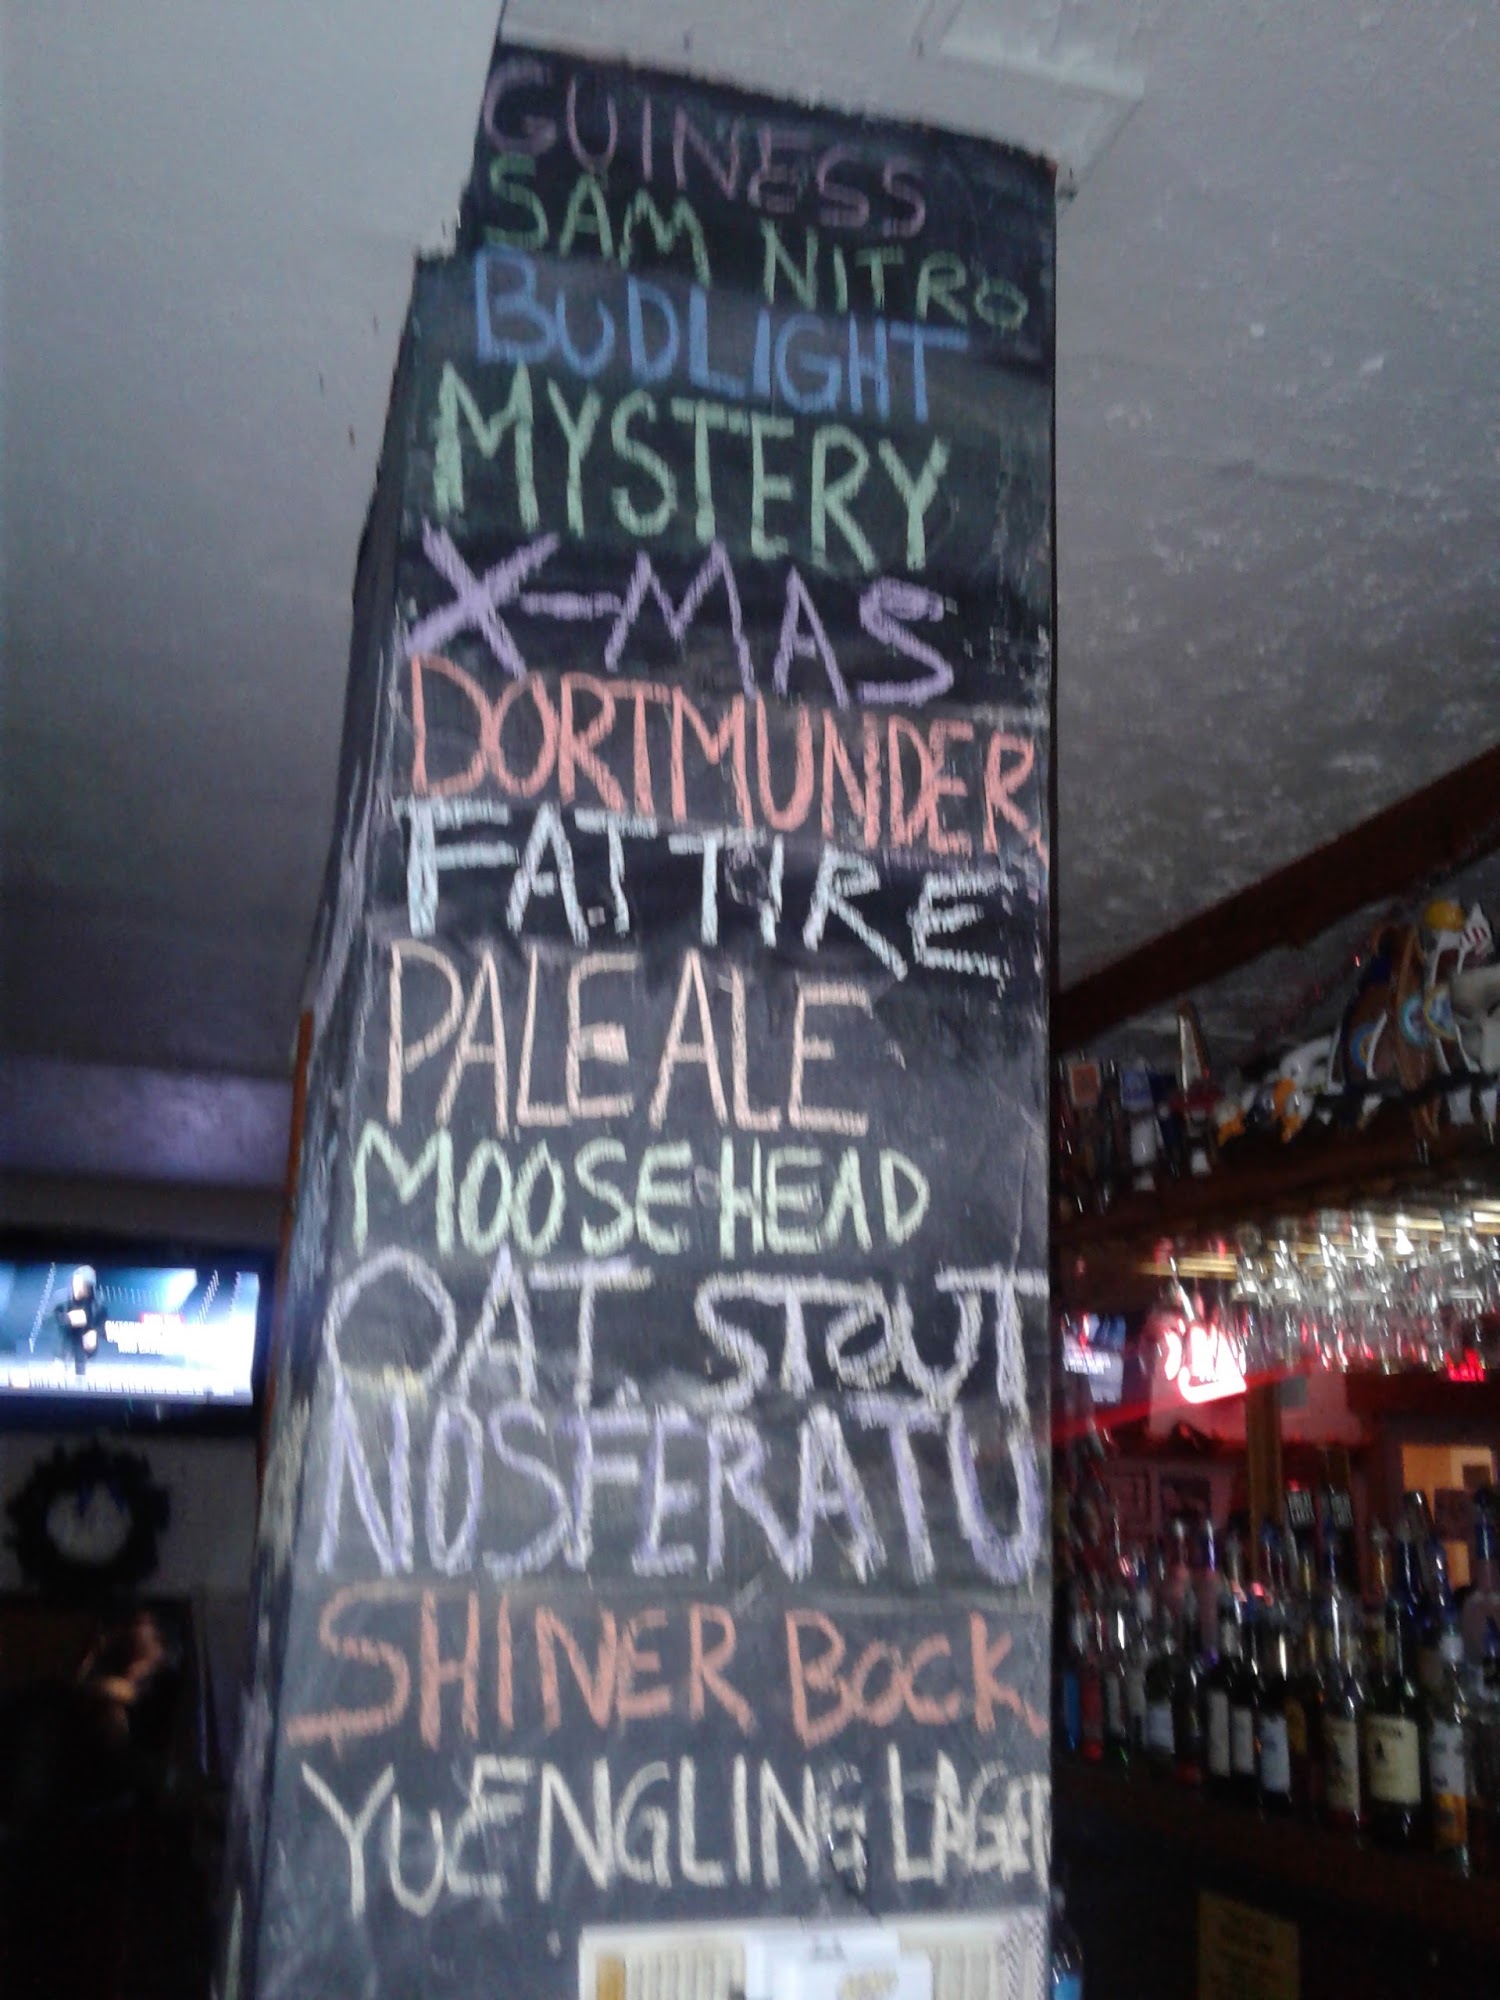 GUINESS
SAM NITRO
BUDLIGHT
MYSTERY
X-MAS
DORTMUNDER
FAT TIRE
PALE ALE
MOOSEHEAD
OAT. STOUT
NOSFERATU
SHINER BOCK
YUENGLING LAGER